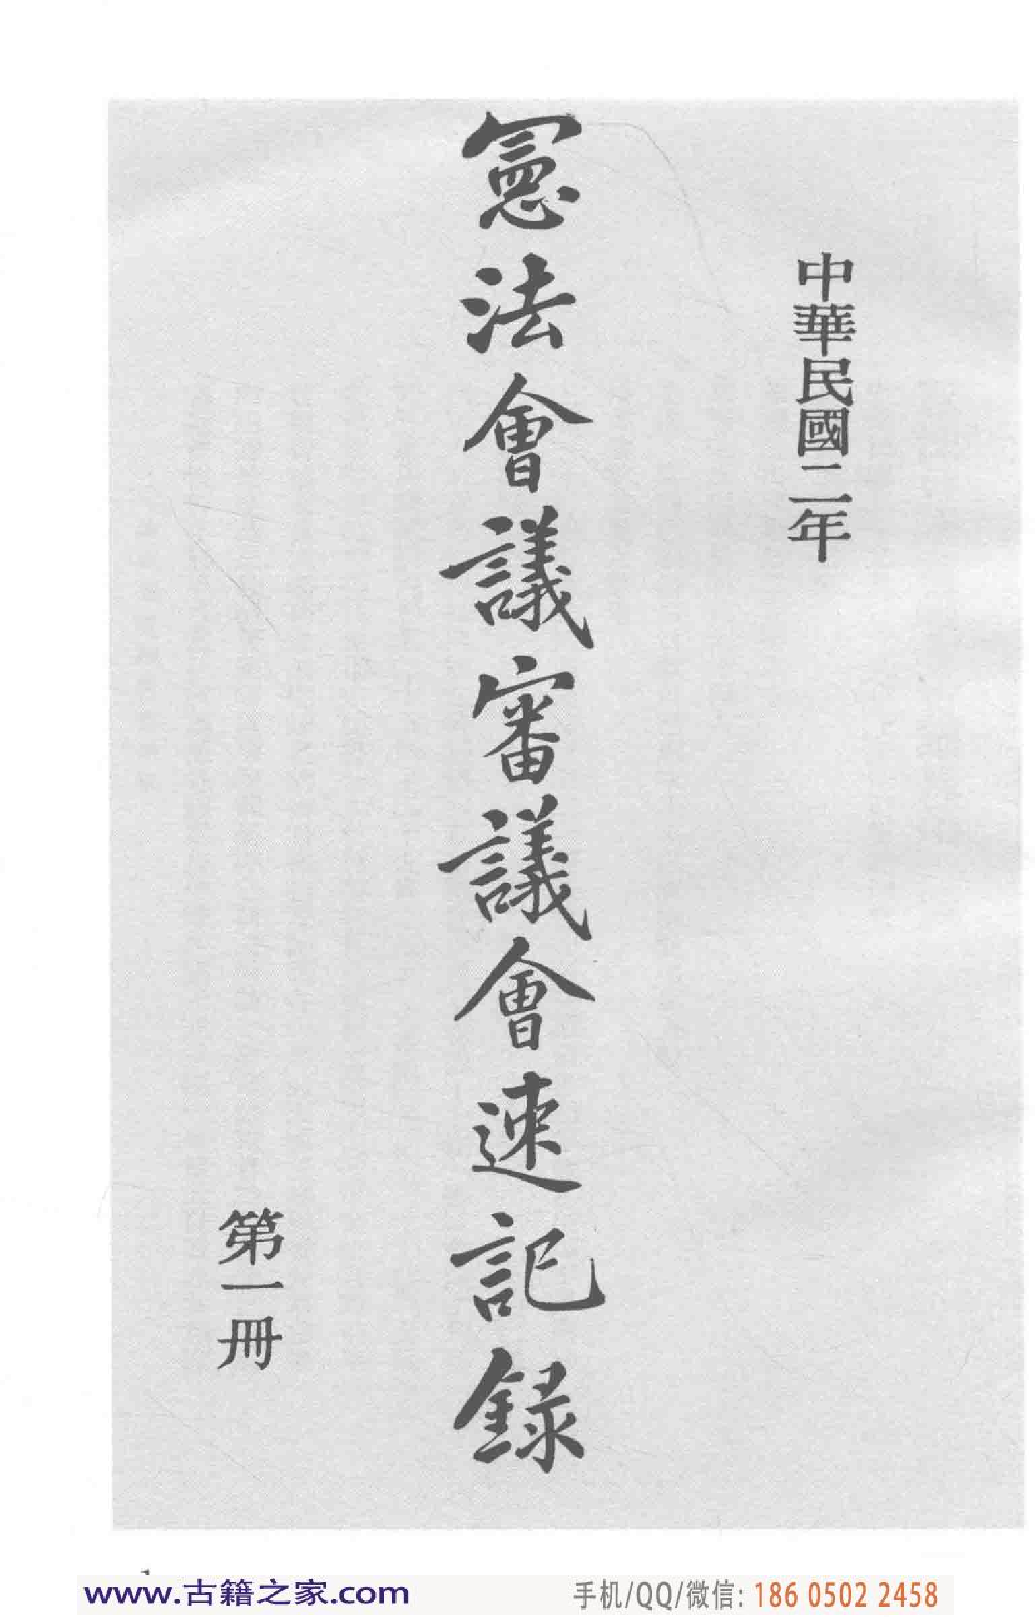 中華民國二年
憲法會議審議會速記録
第一冊
www.古籍之家.com
手机/QQ/微信: 186 0502 2458